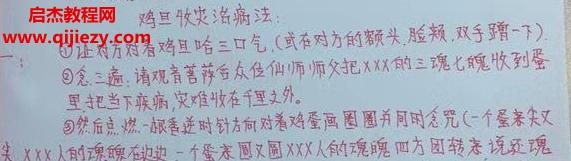 启杰教程网
www.qijiezy.com
鸡旦收灾治病法:
一: ①让对方对着鸡旦哈三口气,(或在对方的额头,脸颊,双手蹭一下).
②念三遍,请观音菩萨各众位仙师师父把XXX的三魂七魄收到蛋
里把当下疾病,灾难收在千里之外。
③然后点燃一根香逆时针方向对着鸡蛋画圈圈并同时念咒(一个蛋来尖又
尖 XXX人的魂魄在边边 一个蛋来圆又圆XXX人的魂魄四方团转来说还魂